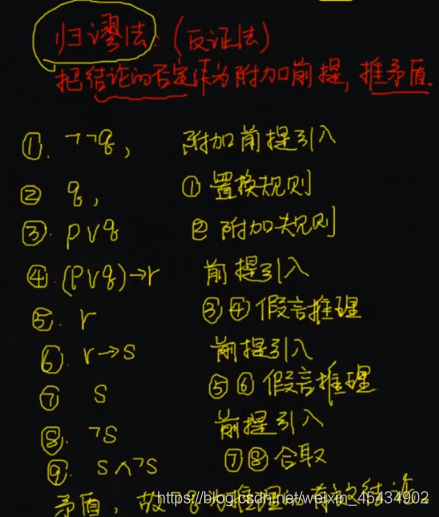 归谬法:(反证法)
把结论的否定作为附加前提,推矛盾.
①. ¬¬q, 附加前提引入
② q, ①置换规则
③. p∨q ②附加规则
④. (p∨q)→r 前提引入
⑤. r ③④假言推理
⑥. r→s 前提引入
⑦ s ⑤⑥假言推理
⑧. ¬s 前提引入
⑨. s∧¬s ⑦⑧合取
矛盾,故 推理 有效结论
https://blog.csdn.net/weixin_45434902